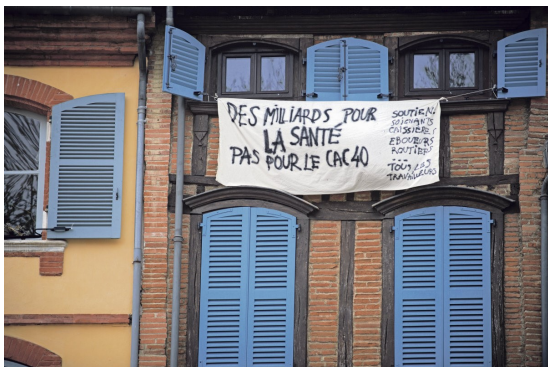 DES MILLIARDS POUR
LA SANTÉ
PAS POUR LE CAC 40
SOUTIEN
SOIGNANTS
CAISSIÈRES
EBOUEURS
ROUTIERS
...
TOUS LES
TRAVAILLEURS